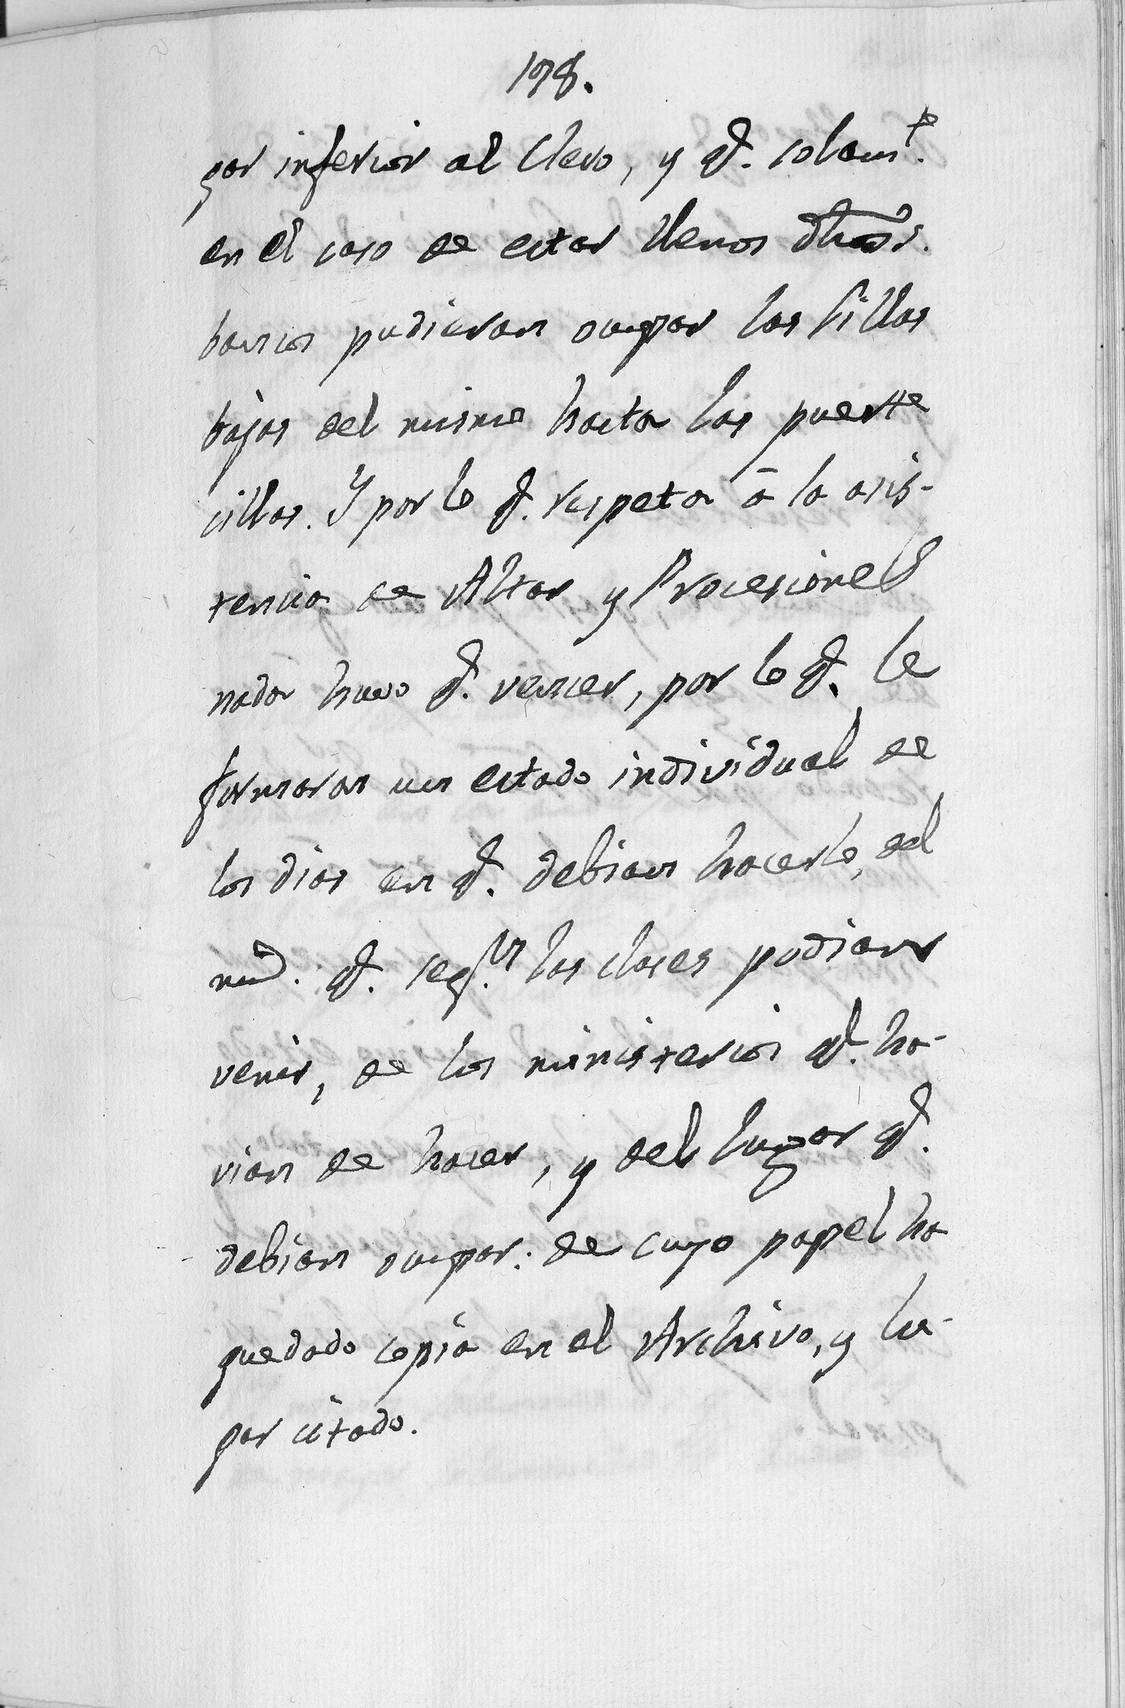 178.
gar inferior al Clero, y q.e solam.te
en el caso de estar llenos dhos.
bancos pudieran ocupar las sillas
bajas del mismo hasta las puerte
cillas. Y por lo q.e respeta â la asis-
tencia de Altar y Procesiones
nada huvo q.e vencer, por lo q.e le
formaron un estado individual de
los dias en q.e debian hacerlo, del
q.e seg.n las clases podian
venir, de los ministerios q.e ha-
vian de hacer, y del lugar q.e
debian ocupar: de cuyo papel ha
quedado copia en el Archivo, y lu-
gar citado.